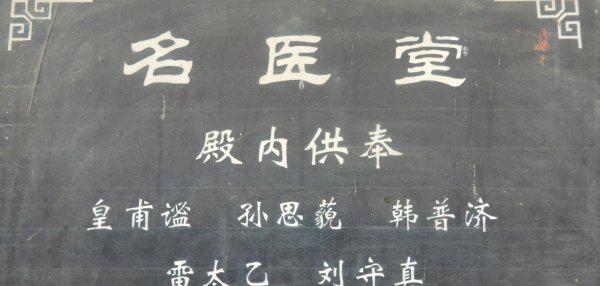 名医堂
殿内供奉
皇甫谧 孙思藐 韩普济
雷太乙 刘守真